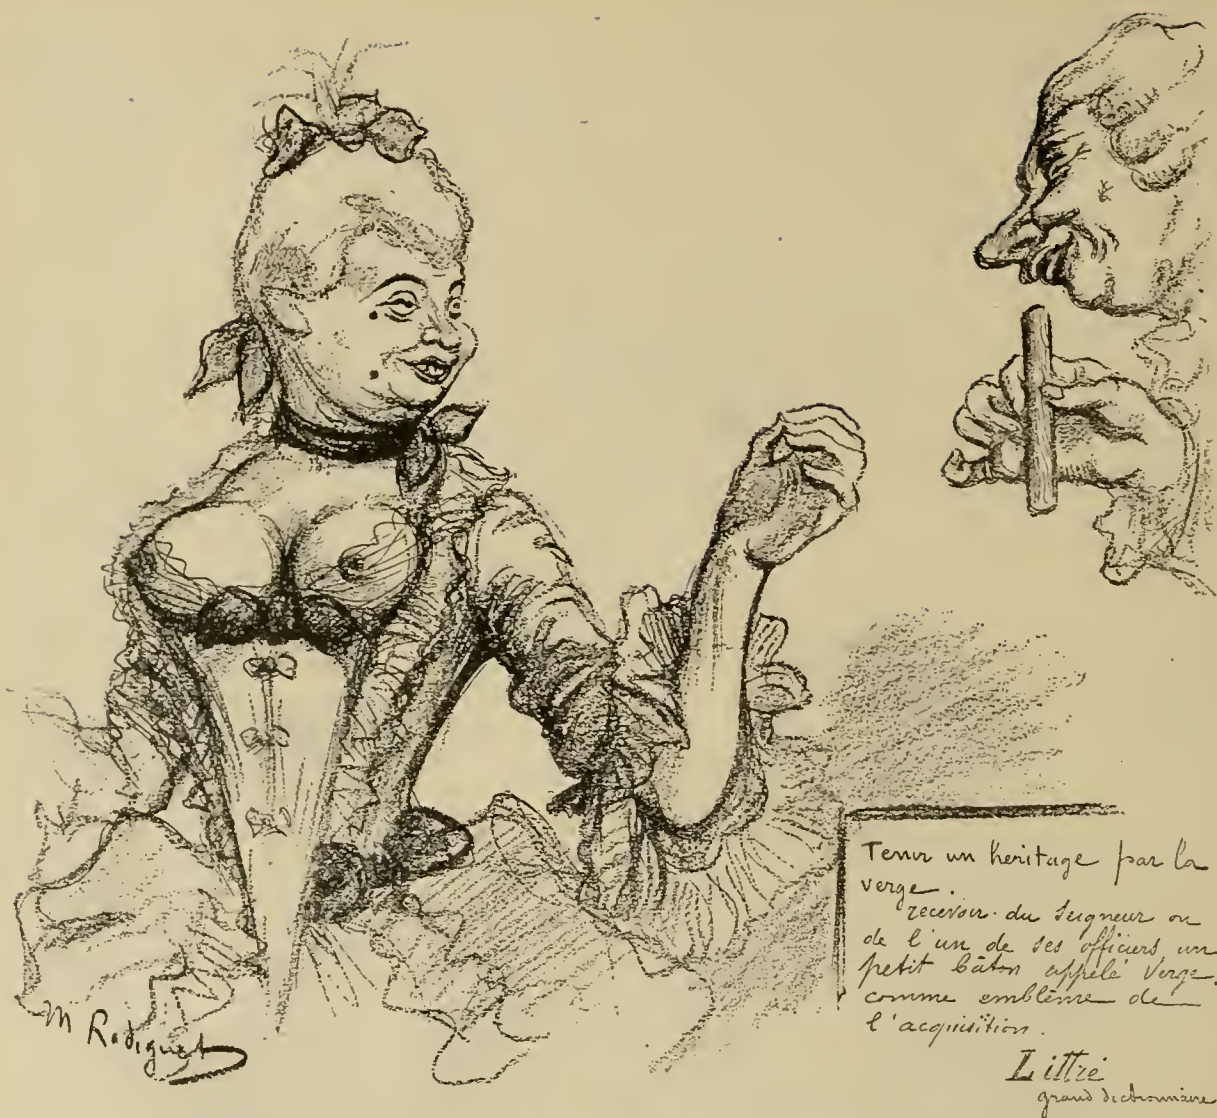 Tenir un heritage par la
verge.
recevoir du Seigneur ou
de l'un de ses officiers un
petit bâton appelé Verge
comme emblême de
l'acquisition.
Littré
grand dictionnaire
M Radiguet